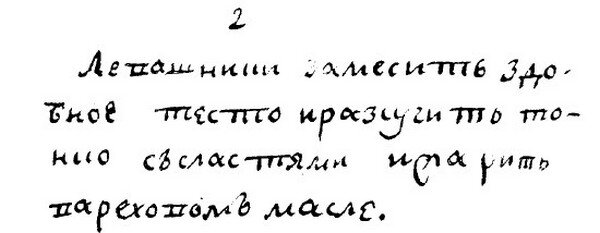 2
Левашники замесить здо-
бное тесто иразсучить то-
нко съсластями ижарить
вареховомъ масле.